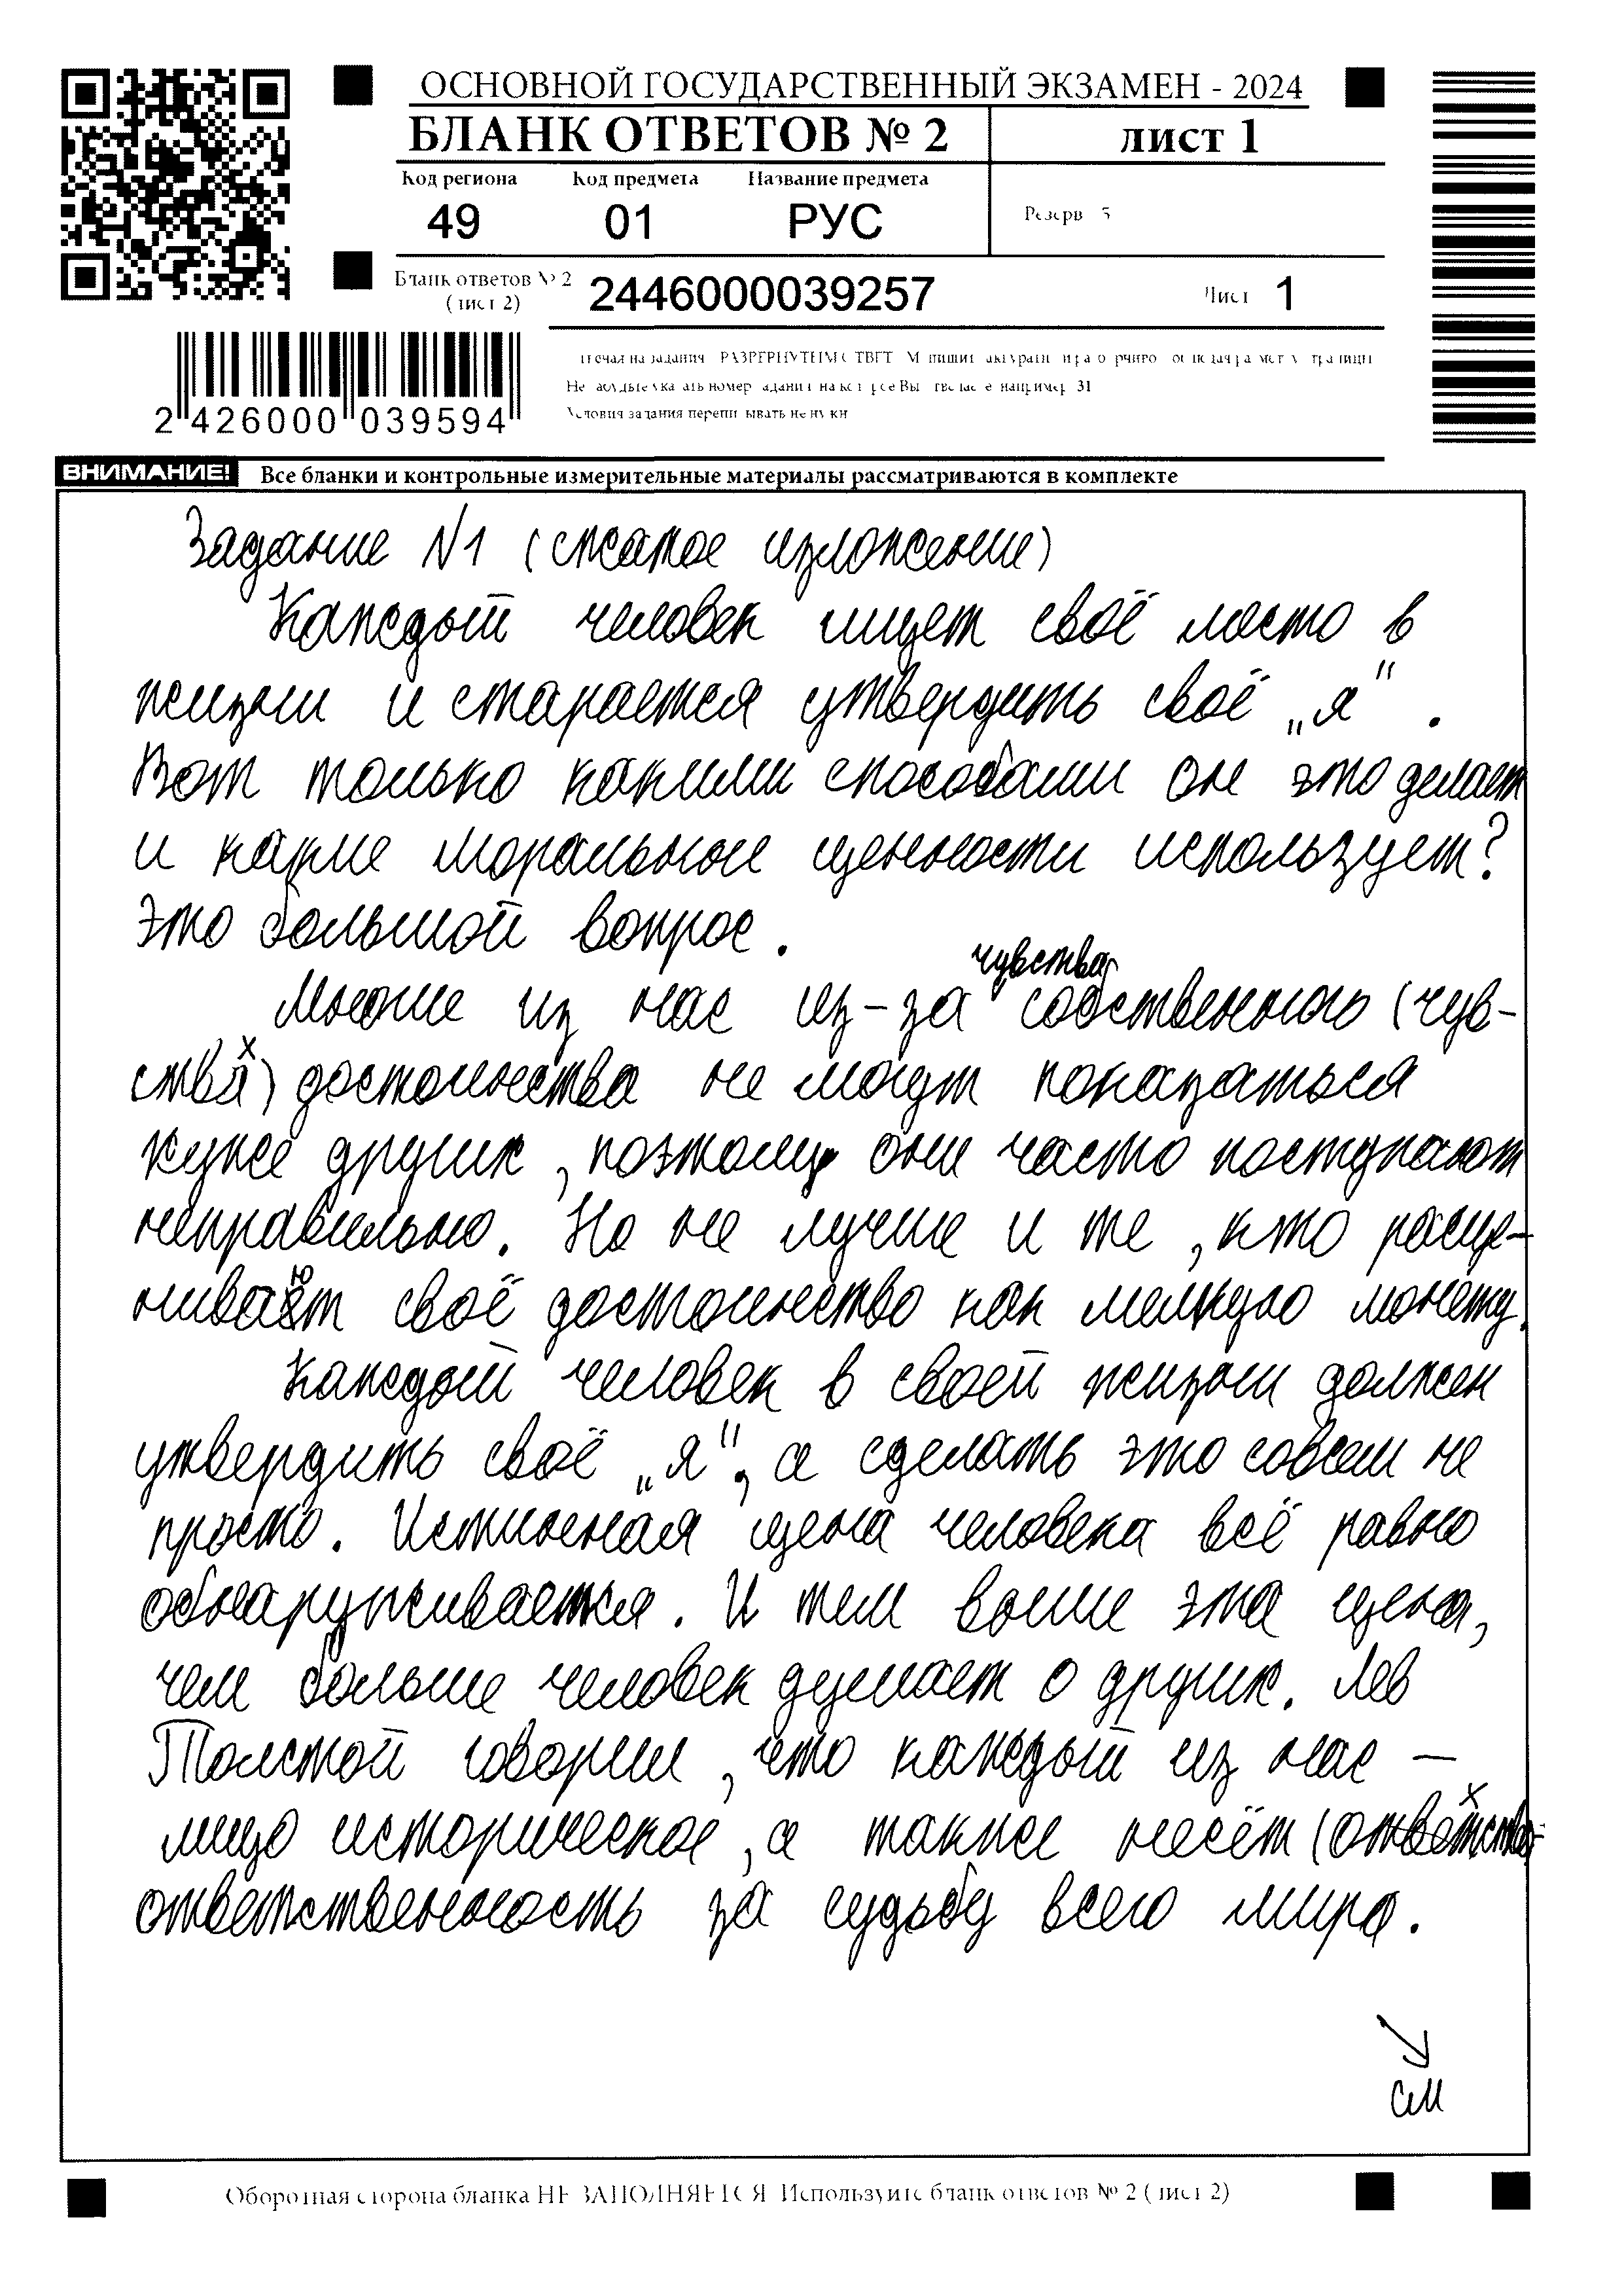 ОСНОВНОЙ ГОСУДАРСТВЕННЫЙ ЭКЗАМЕН - 2024
БЛАНК ОТВЕТОВ № 2
лист 1
Код региона Код предмета Название предмета
49 01 РУС
Резерв 5
Бланк ответов № 2
(лист 2)
2446000039257
Лист 1
2 426000 039594
Условия задания переписывать не нужно
ВНИМАНИЕ! Все бланки и контрольные измерительные материалы рассматриваются в комплекте
Задание N1 (сжатое изложение)
Каждый человек ищет своё место в
жизни и старается утвердить своё „я“ .
Вот только какими способами он это делает
и какие моральные ценности использует?
Это большой вопрос.
чувства
Многие из нас из-за собственного (чув-
ства) достоинства не могут показаться
хуже других, поэтому они часто поступают
неправильно. Но не лучше и те, кто расце-
нивают своё достоинство как мелкую монету.
Каждый человек в своей жизни должен
утвердить своё „я“, а сделать это совсем не
просто. Истинная цена человека всё равно
обнаруживается. И тем выше эта цена,
чем больше человек думает о других. Лев
Толстой говорил, что каждый из нас —
лицо историческое, а также несёт (ответство-
ответственность за судьбу всего мира.
см
Оборотная сторона бланка НЕ ЗАПОЛНЯЕТСЯ. Используйте бланк ответов № 2 (лист 2)